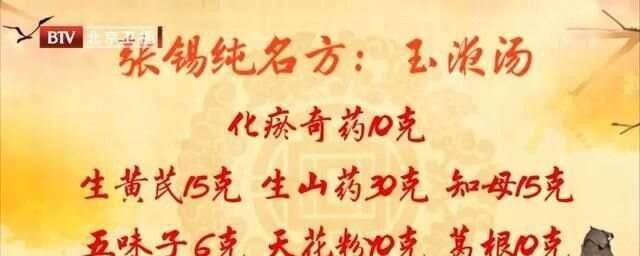 BTV 北京卫视
张锡纯名方：玉液汤
化瘀奇药10克
生黄芪15克 生山药30克 知母15克
五味子6克 天花粉10克 葛根10克